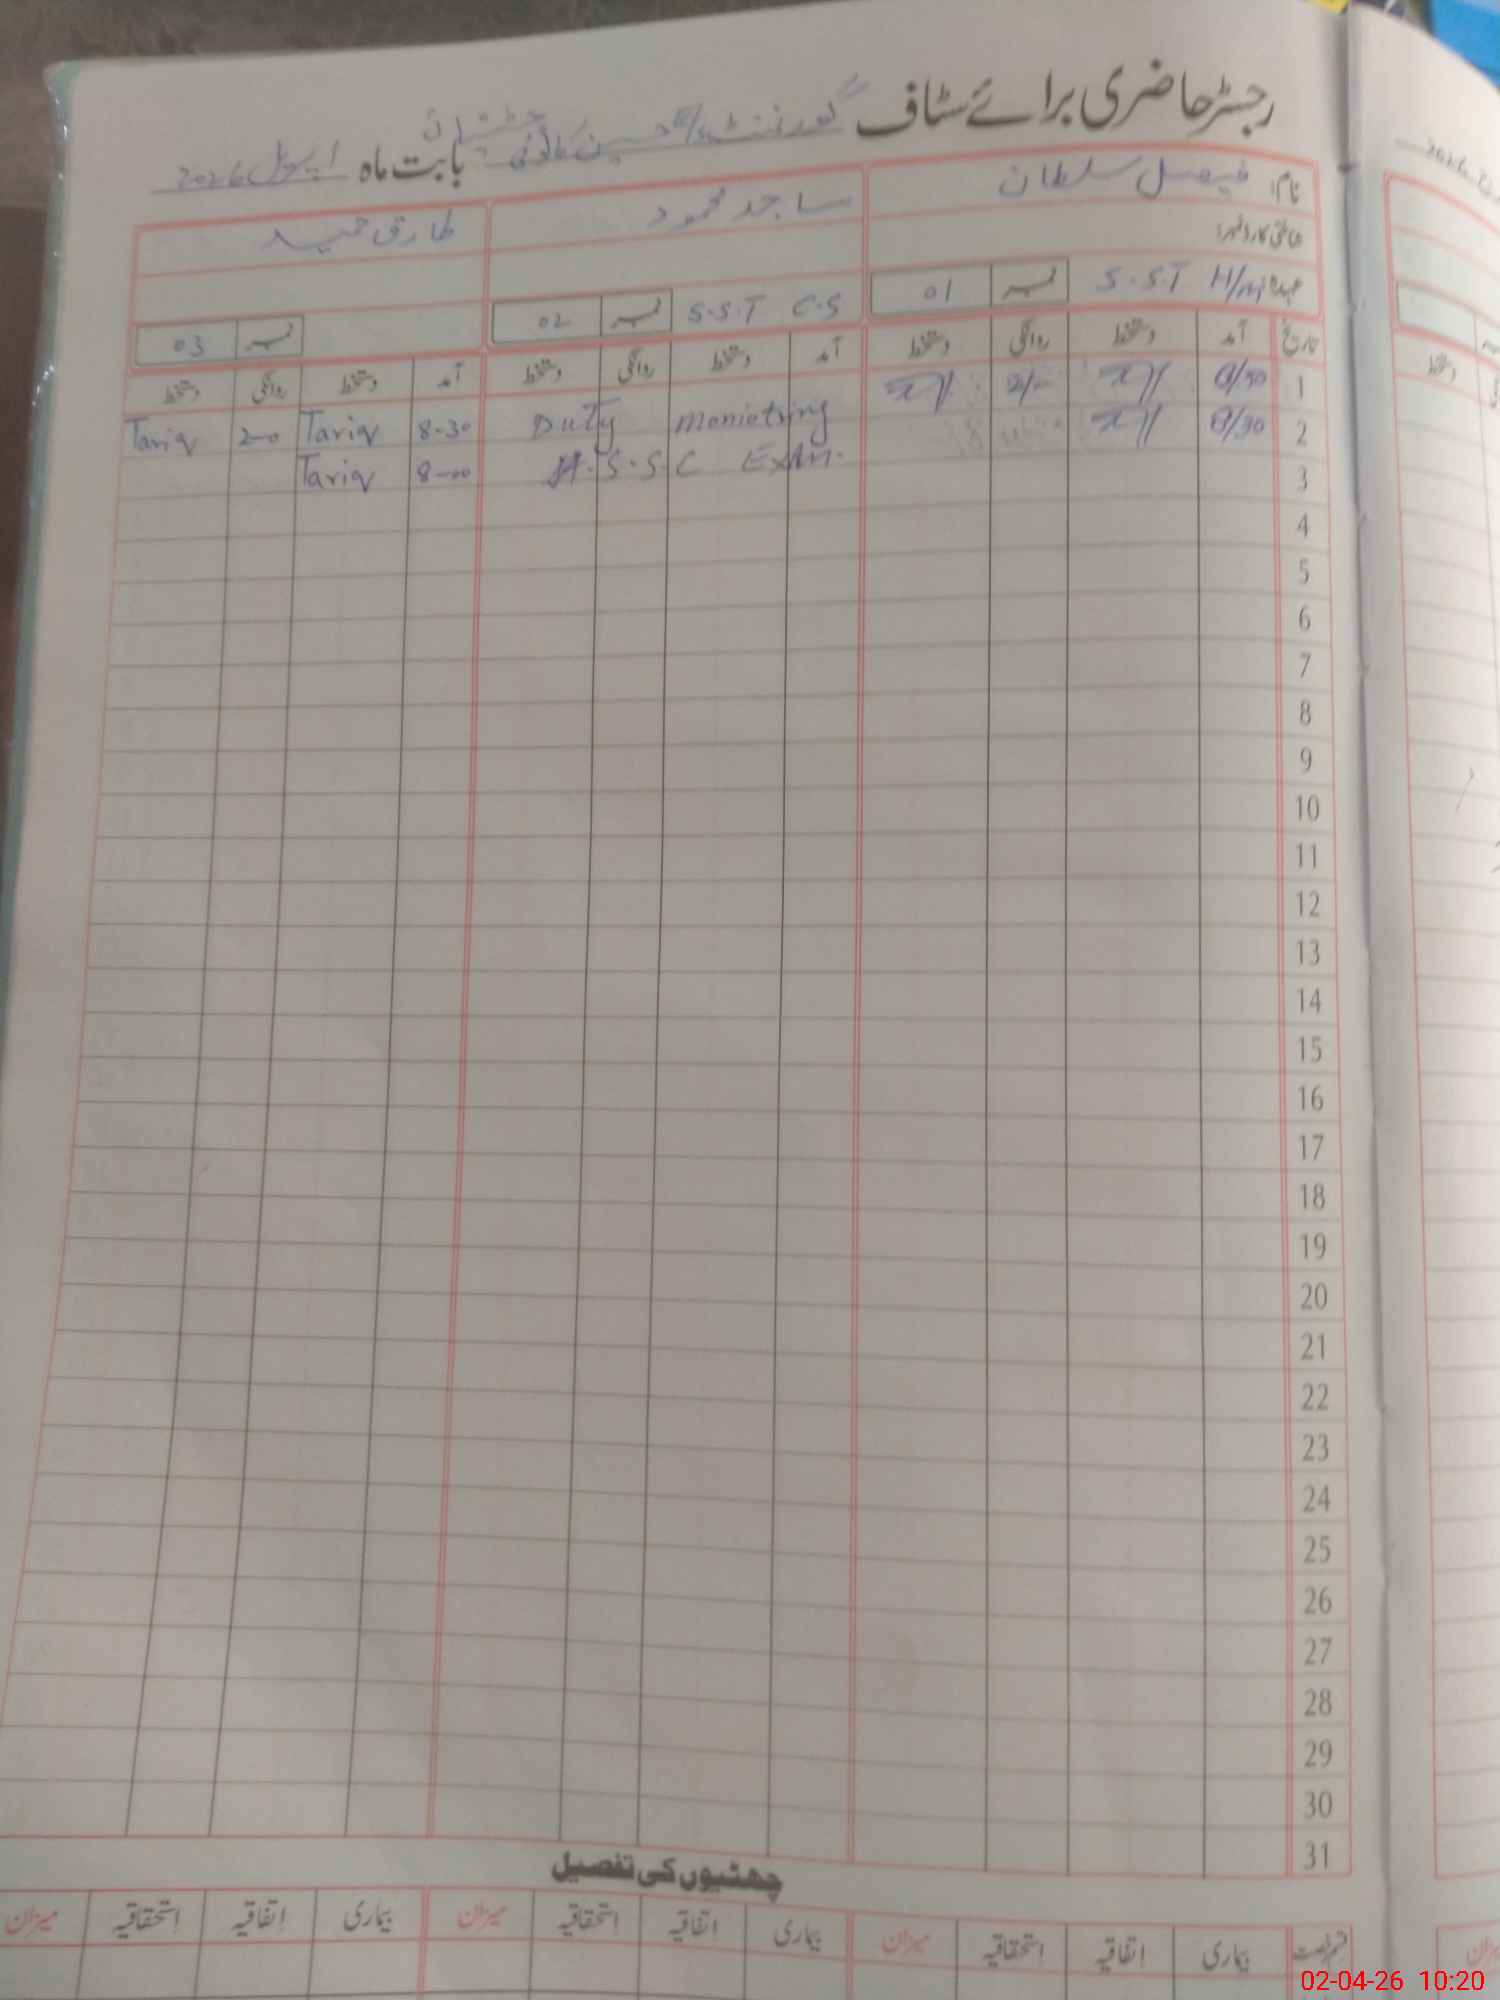 رجسٹر حاضری برائے سٹاف گورنمنٹ
بابت ماہ اپریل 2026
نام: فیصل سلطان ساجد محمود طارق حمید
شناختی کارڈ نمبر:
عہدہ: S.S.T نمبر 01 S.S.T C.S نمبر 02 نمبر 03
تاریخ آمد دستخط روانگی دستخط آمد دستخط روانگی دستخط آمد دستخط روانگی دستخط
1 8/30 2/- Duty Monietring 8-30 Tariq 2-0 Tariq
2 8/30 H.S.S.C Exam. 8-00 Tariq
3
4
5
6
7
8
9
10
11
12
13
14
15
16
17
18
19
20
21
22
23
24
25
26
27
28
29
30
31
چھٹیوں کی تفصیل
قسم رخصت بیماری اتفاقیہ استحقاقیہ میزان بیماری اتفاقیہ استحقاقیہ میزان بیماری اتفاقیہ استحقاقیہ میزان
02-04-26 10:20